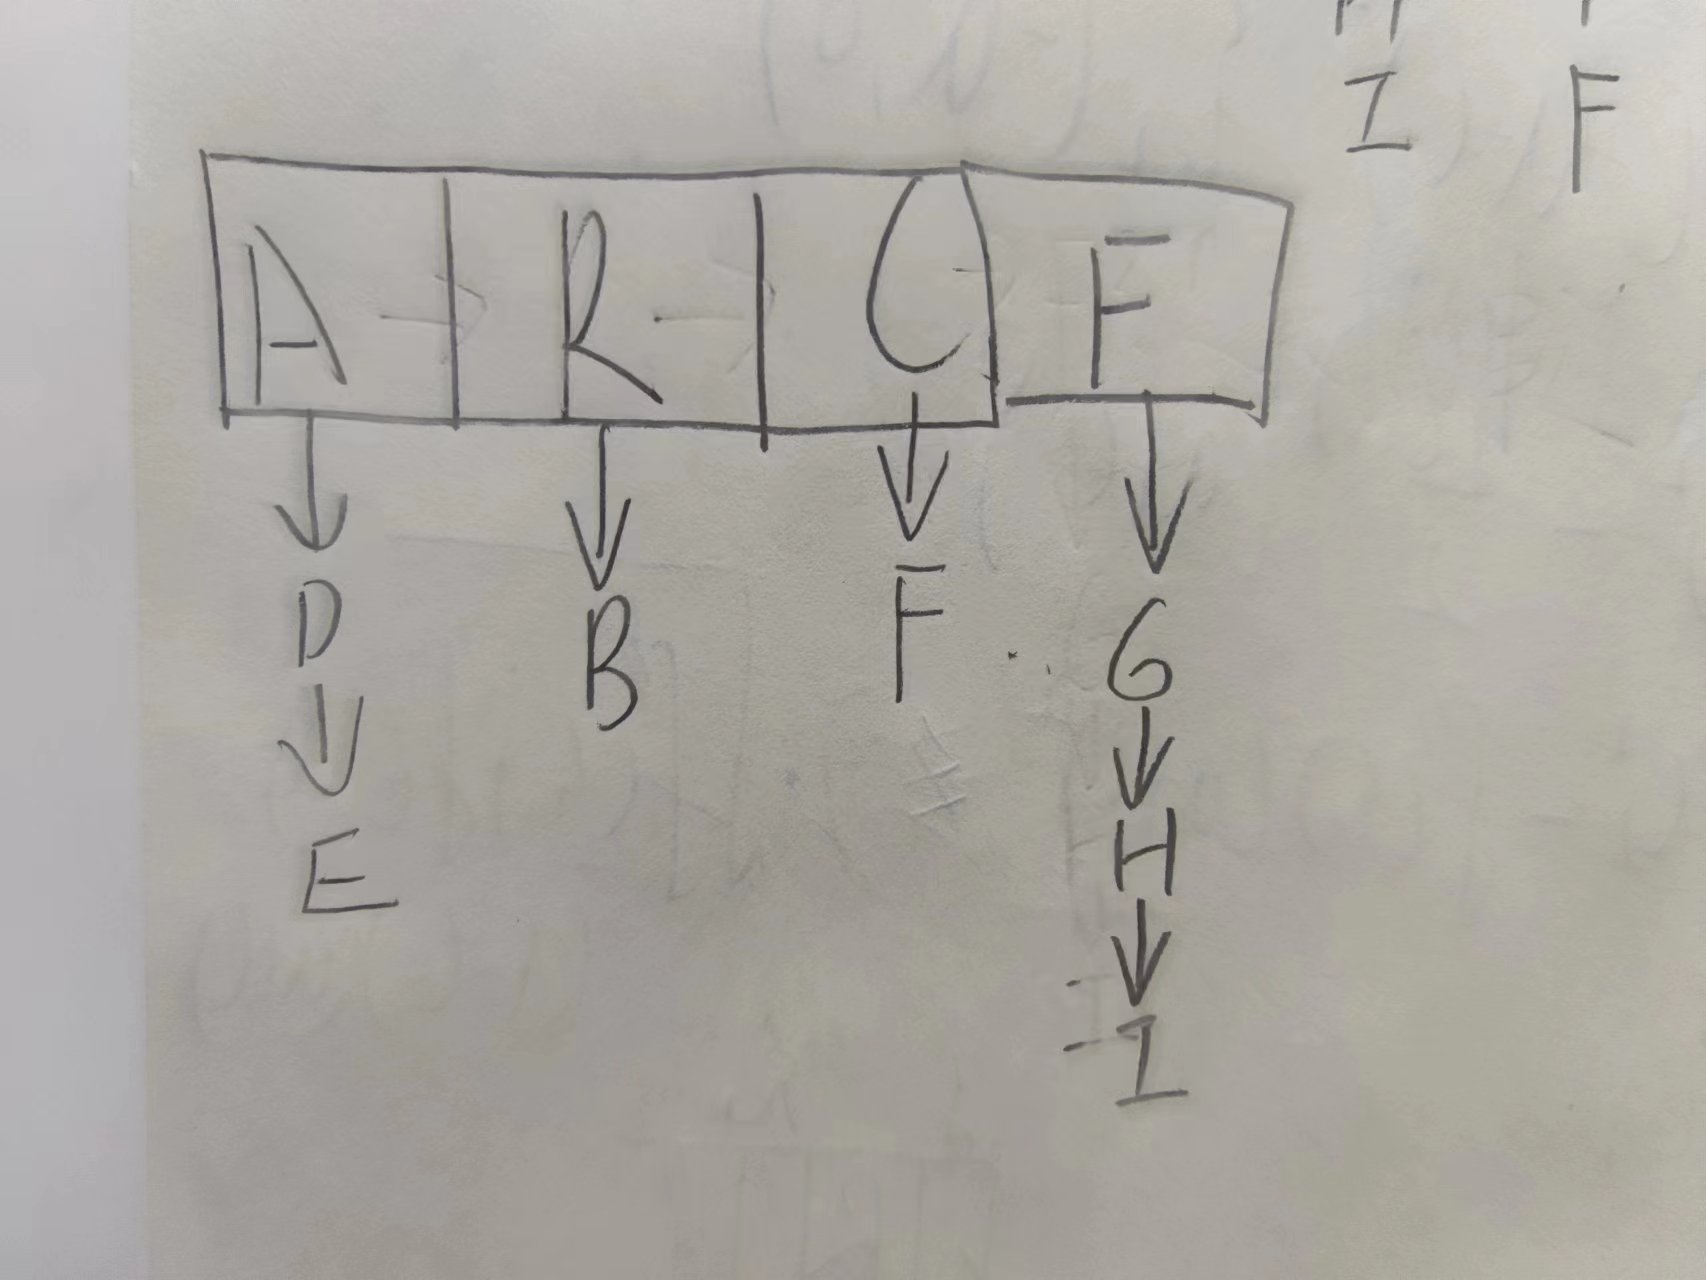 I F
A → R → C → F
↓ ↓ ↓ ↓
D B F G
↓ ↓
E H
↓
I